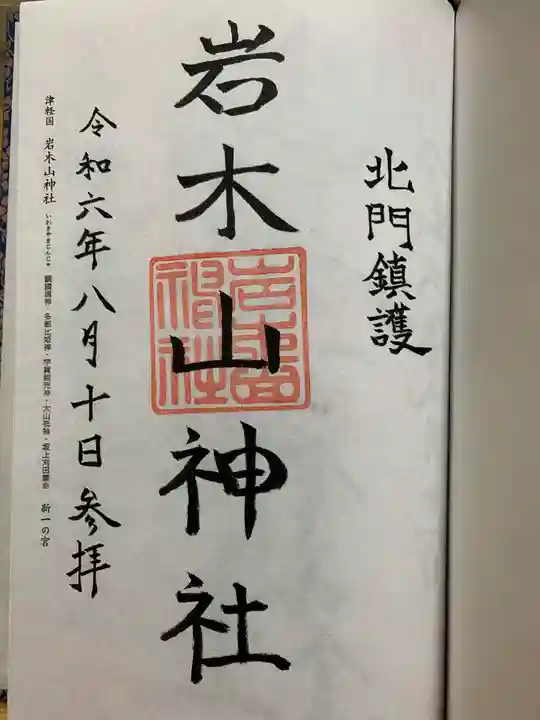 北門鎮護
岩木山神社
令和六年八月十日参拝
津軽国 岩木山神社 いわきやまじんじゃ 顕國魂神・多都比姫神・宇賀能売神・大山祇神・坂上刈田麿命 新一の宮